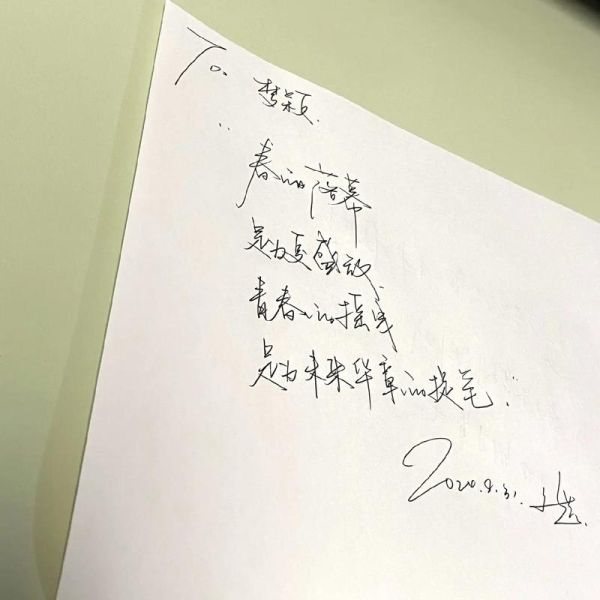 To. 梦颖
春的落幕
是为夏盛放
青春的摇曳
是为未来华章的提笔.
2020.8.31.